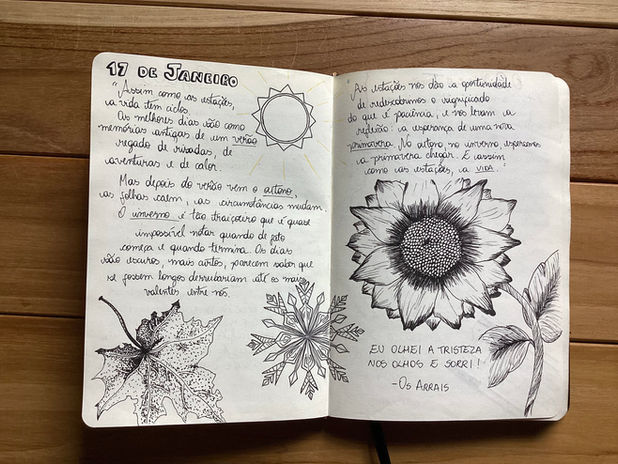 17 DE JANEIRO
"Assim como as estações,
a vida tem ciclos.
As melhores dias são como
memórias antigas de um verão
regado de risadas, de
aventuras e de calor.
Mas depois do verão vem o outono,
as folhas caem, as circunstâncias mudam.
O inverno é tão traiçoeiro que é quase
impossível notar quando de fato
começa e quando termina. Os dias
são escuros, mais curtos, parecem saber que
se fossem longos derrubariam até os mais
valentes entre nós.
As estações nos dão a oportunidade
de redescobrirmos o significado
do que é paciência, e nos levam a
reflexão: a esperança de uma nova
primavera. No outono, no inverno, esperamos
a primavera chegar. E assim
como as estações, a vida."
EU OLHEI A TRISTEZA
NOS OLHOS E SORRI!
-OS ARRAIS